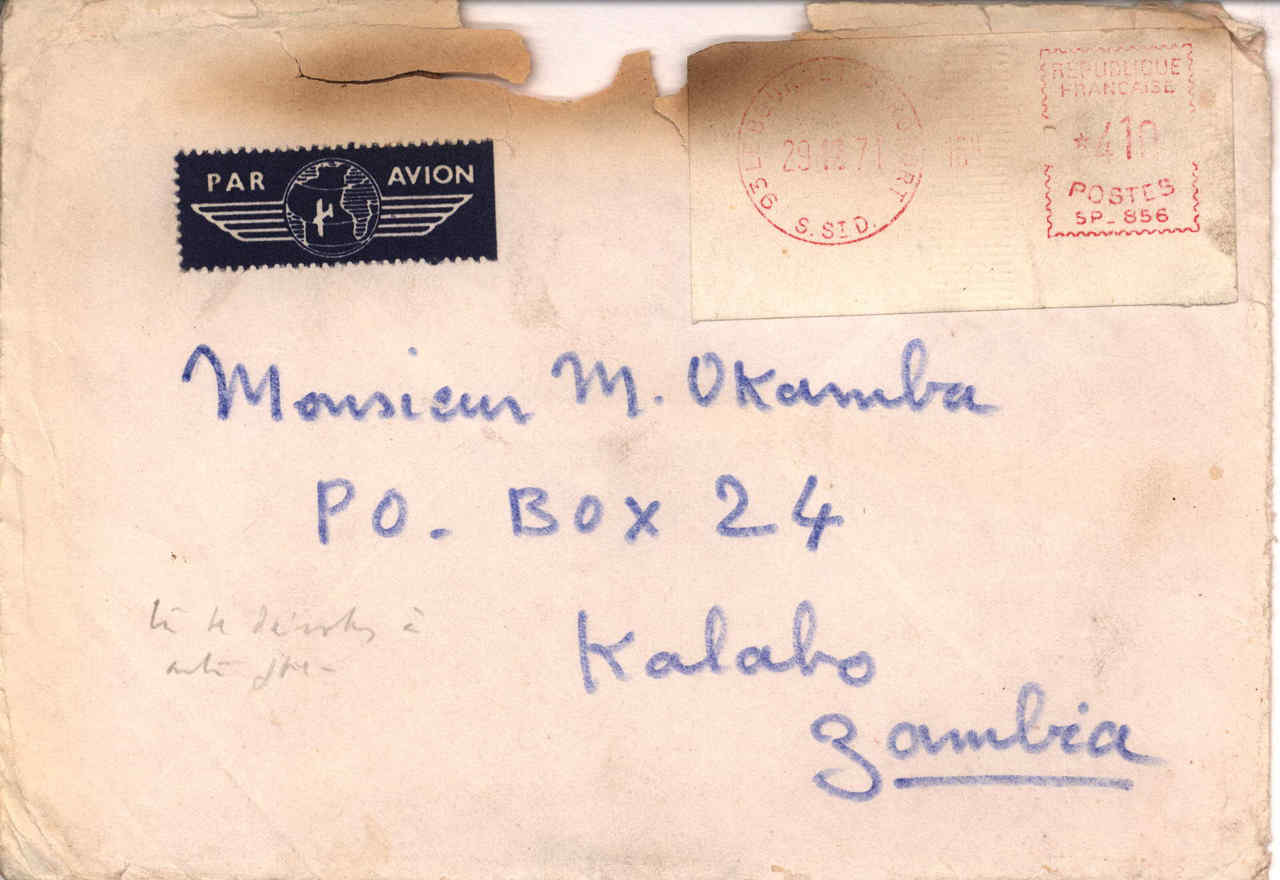 PAR AVION
S. ST D.
REPUBLIQUE
FRANCAISE
POSTES
SP_856
Monsieur M. Okamba
PO. BOX 24
Kalabo
Zambia